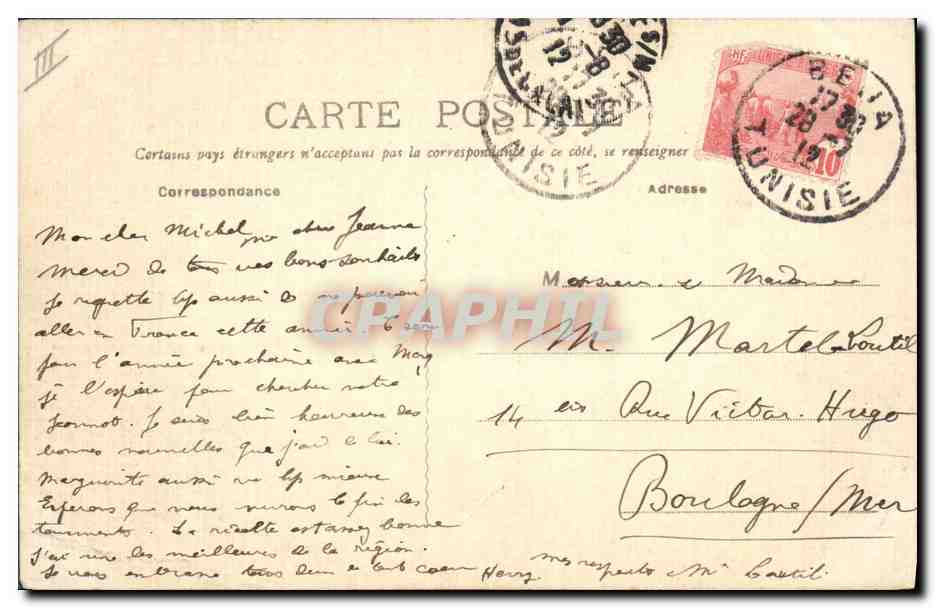 III
CARTE POSTALE
Certains pays étrangers n'acceptant pas la correspondance de ce côté, se renseigner
Correspondance
Adresse
BEJA
17 30
28 -7
12
TUNISIE
TUNISIE
12
RF
10
Mon cher Michel, ma chère Jeanne
Merci de tous vos bons souhaits
Je regrette bp aussi de ne pouvoir
aller en France cette année. Ce sera
pour l'année prochaine avec Marg
je l'espère pour chercher votre
Jeannot. Je suis bien heureuse des
bonnes nouvelles que j'ai de lui.
Marguerite aussi va bp mieux
Espérons que nous verrons la fin des
tourments. La récolte est assez bonne
J'ai une des meilleures de la région.
Je vous embrasse tous deux de tout coeur Henry
mes respects à Me Loutil.
Monsieur et Madame
M. Martel-Loutil
14 bis Rue Victor-Hugo
Boulogne/Mer
CPAPHIL